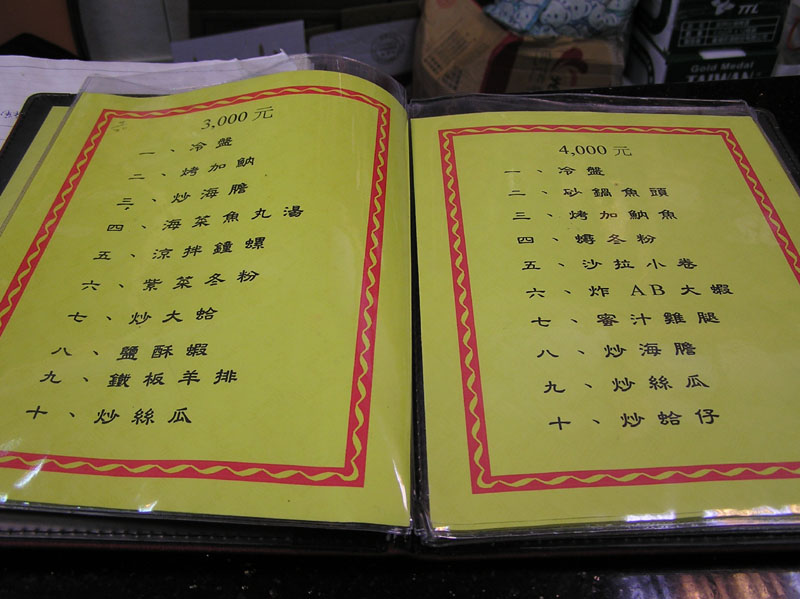 3,000 元
一、冷盤
二、烤加魶
三、炒海膽
四、海菜魚丸湯
五、涼拌鐘螺
六、紫菜冬粉
七、炒大蛤
八、鹽酥蝦
九、鐵板羊排
十、炒絲瓜
4,000 元
一、冷盤
二、砂鍋魚頭
三、烤加魶魚
四、蟳冬粉
五、沙拉小卷
六、炸 AB 大蝦
七、蜜汁雞腿
八、炒海膽
九、炒絲瓜
十、炒蛤仔
TTL
Gold Medal
TAIWAN